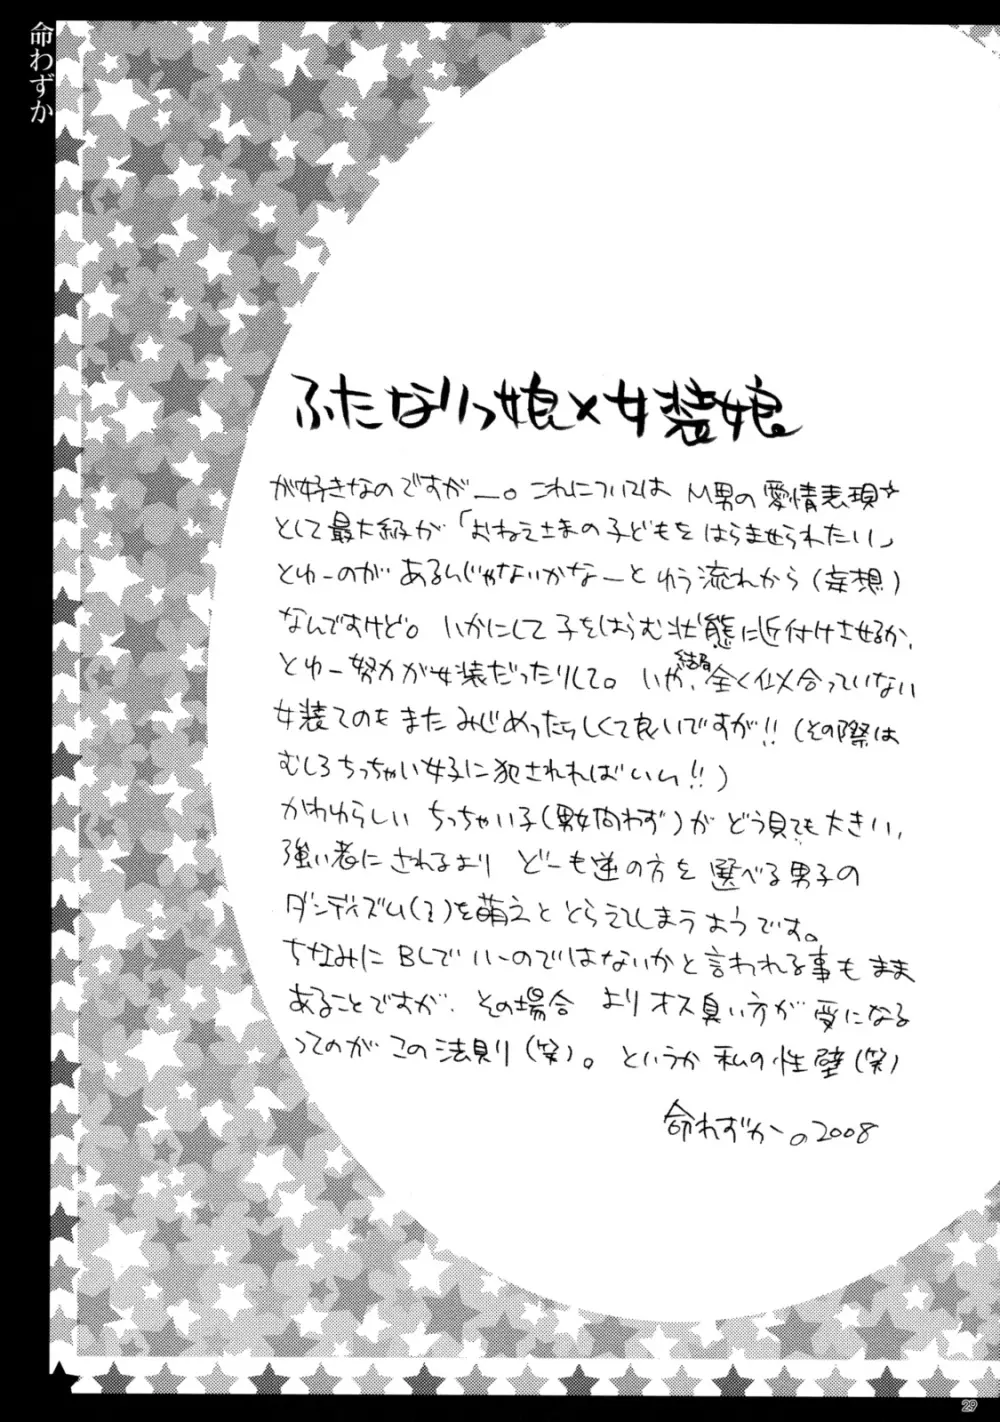 命わずか
ふたなりっ娘×女装娘
が好きなのですがー。これについては M男の愛情表現☆
として最大級が「おねえさまの子どもをはらませられたい」
とゆーのが あるんじゃないかなーとゆう流れから(妄想)
なんですけど。いかにして子をはらむ状態に近付けさせるか、
とゆー努力が女装だったりして。いや、結局全く似合っていない
女装てのもまたみじめったらしくて良いですが!!(その際は
むしろちっちゃい女子に犯されればいい!!)
かわゆらしい ちっちゃい子(男女問わず)が どう見ても大きい、
強い者にされるより どーも逆の方を 選べる男子の
ダンディズム(?)を萌えととらえてしまうようです。
ちなみに BLでいーのではないかと言われる事もまま
あることですが、その場合 よりオス臭い方が 受になる
ってのが この法則(笑)。というか 私の性壁(笑)
命わずか。2008
29